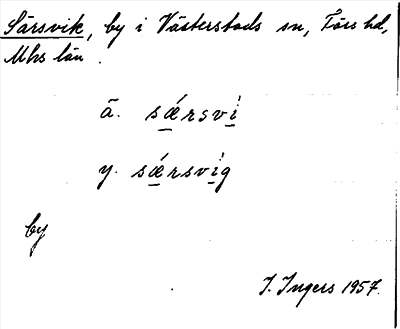 Särsvik, by i Västerstads sn, Färs hd,
Mhs län.
ä. sǽrsvi
y. sǽrsvig
by
I. Ingers 1957.